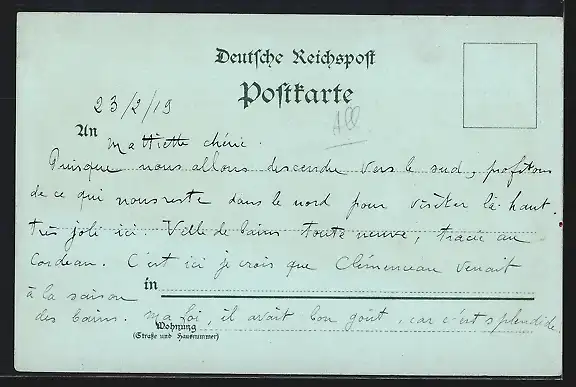 Deutsche Reichspost
Postkarte
23/2/19
All
An
Ma Miette chérie.
Puisque nous allons descendre vers le sud, profitons
de ce qui nous reste dans le nord pour visiter là-haut.
Très joli ici Ville de bains toute neuve, tracée au
cordeau. C'est ici je crois que Clémenceau venait
à la saison
in
des bains. Ma foi, il avait bon goût, car c'est splendide.
Wohnung
(Straße und Hausnummer)